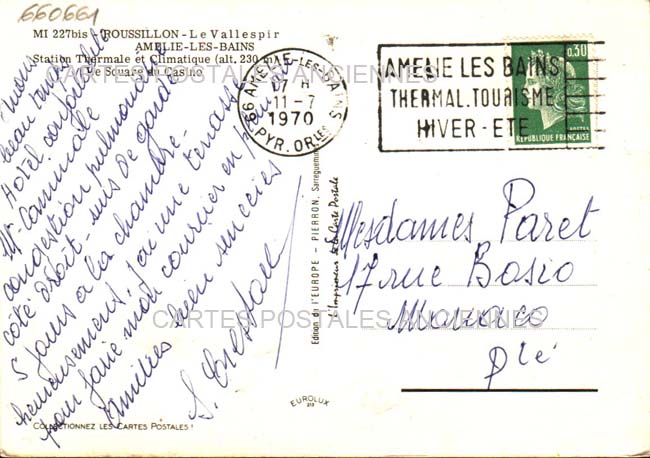 660661
MI 227bis ROUSSILLON - Le Vallespir
AMELIE-LES-BAINS
Station Thermale et Climatique (alt. 230 m)
Le Square du Casino
CARTES POSTALES ANCIENNES
Avons
beau temps
Hôtel confortable
Mt Caminale
congestion pulmonaire
côté droit - suis de garde
5 jours à la chambre -
heureusement, j'ai une terrasse
pour faire mon courrier en
Amitiés bien sincères
66 AMELIE-LES-BAINS
17 H
11-7
1970
PYR. ORles
AMELIE LES BAINS
THERMAL.TOURISME
HIVER-ETE
0,30
POSTES
REPUBLIQUE FRANÇAISE
Edition de l'EUROPE - PIERRON, Sarreguemines
Imprimeur de la Carte Postale
Mesdames Paret
17 rue Bosio
Monaco
Pté
CARTES POSTALES ANCIENNES
EUROLUX
COLLECTIONNEZ LES CARTES POSTALES !